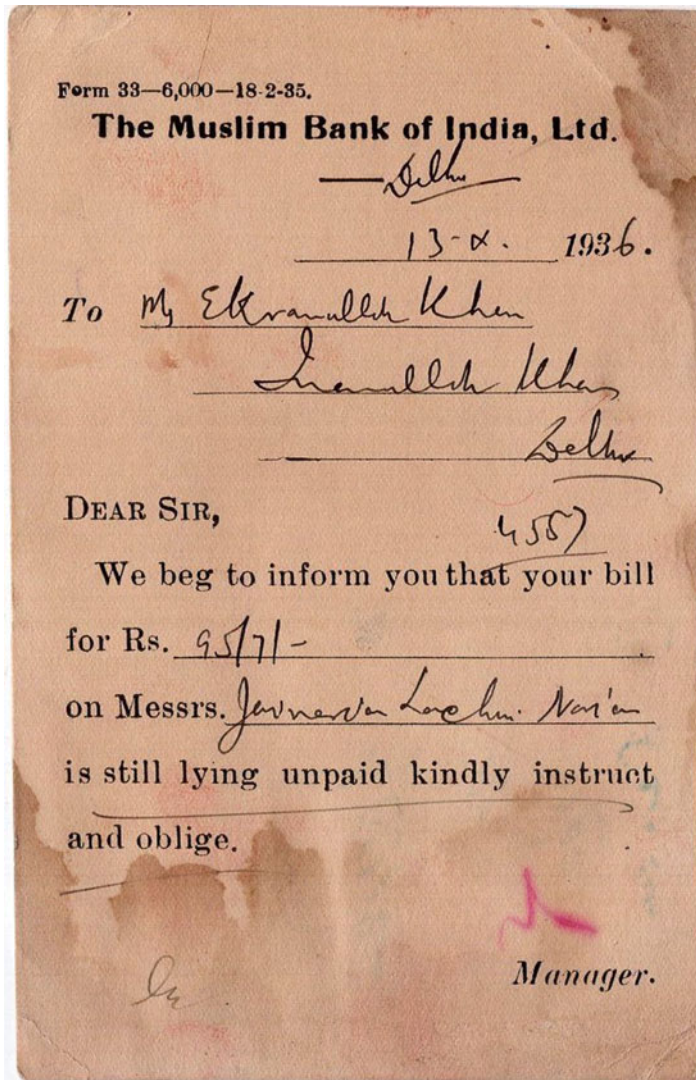 Form 33—6,000—18-2-35.
The Muslim Bank of India, Ltd.
Delhi
13-X. 1936.
To M/s Ekramullah Khan
Inamullah Khan
Delhi
DEAR SIR,
4557
We beg to inform you that your bill
for Rs. 95/7/-
on Messrs. Narain
is still lying unpaid kindly instruct
and oblige.
Manager.